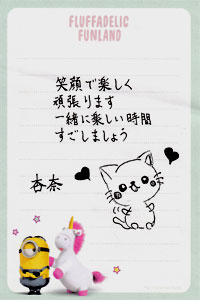 FLUFFADELIC
FUNLAND
笑顔で楽しく
頑張ります
一緒に楽しい時間
すごしましょう
杏奈